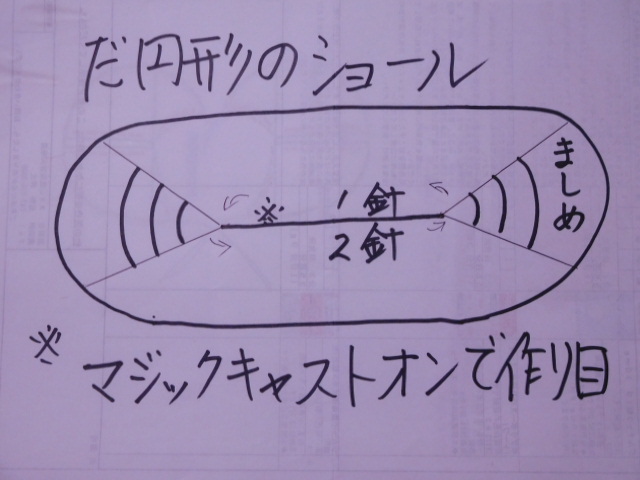 だ円形のショール
※ 1針
2針
ましめ
※ マジックキャストオンで作り目